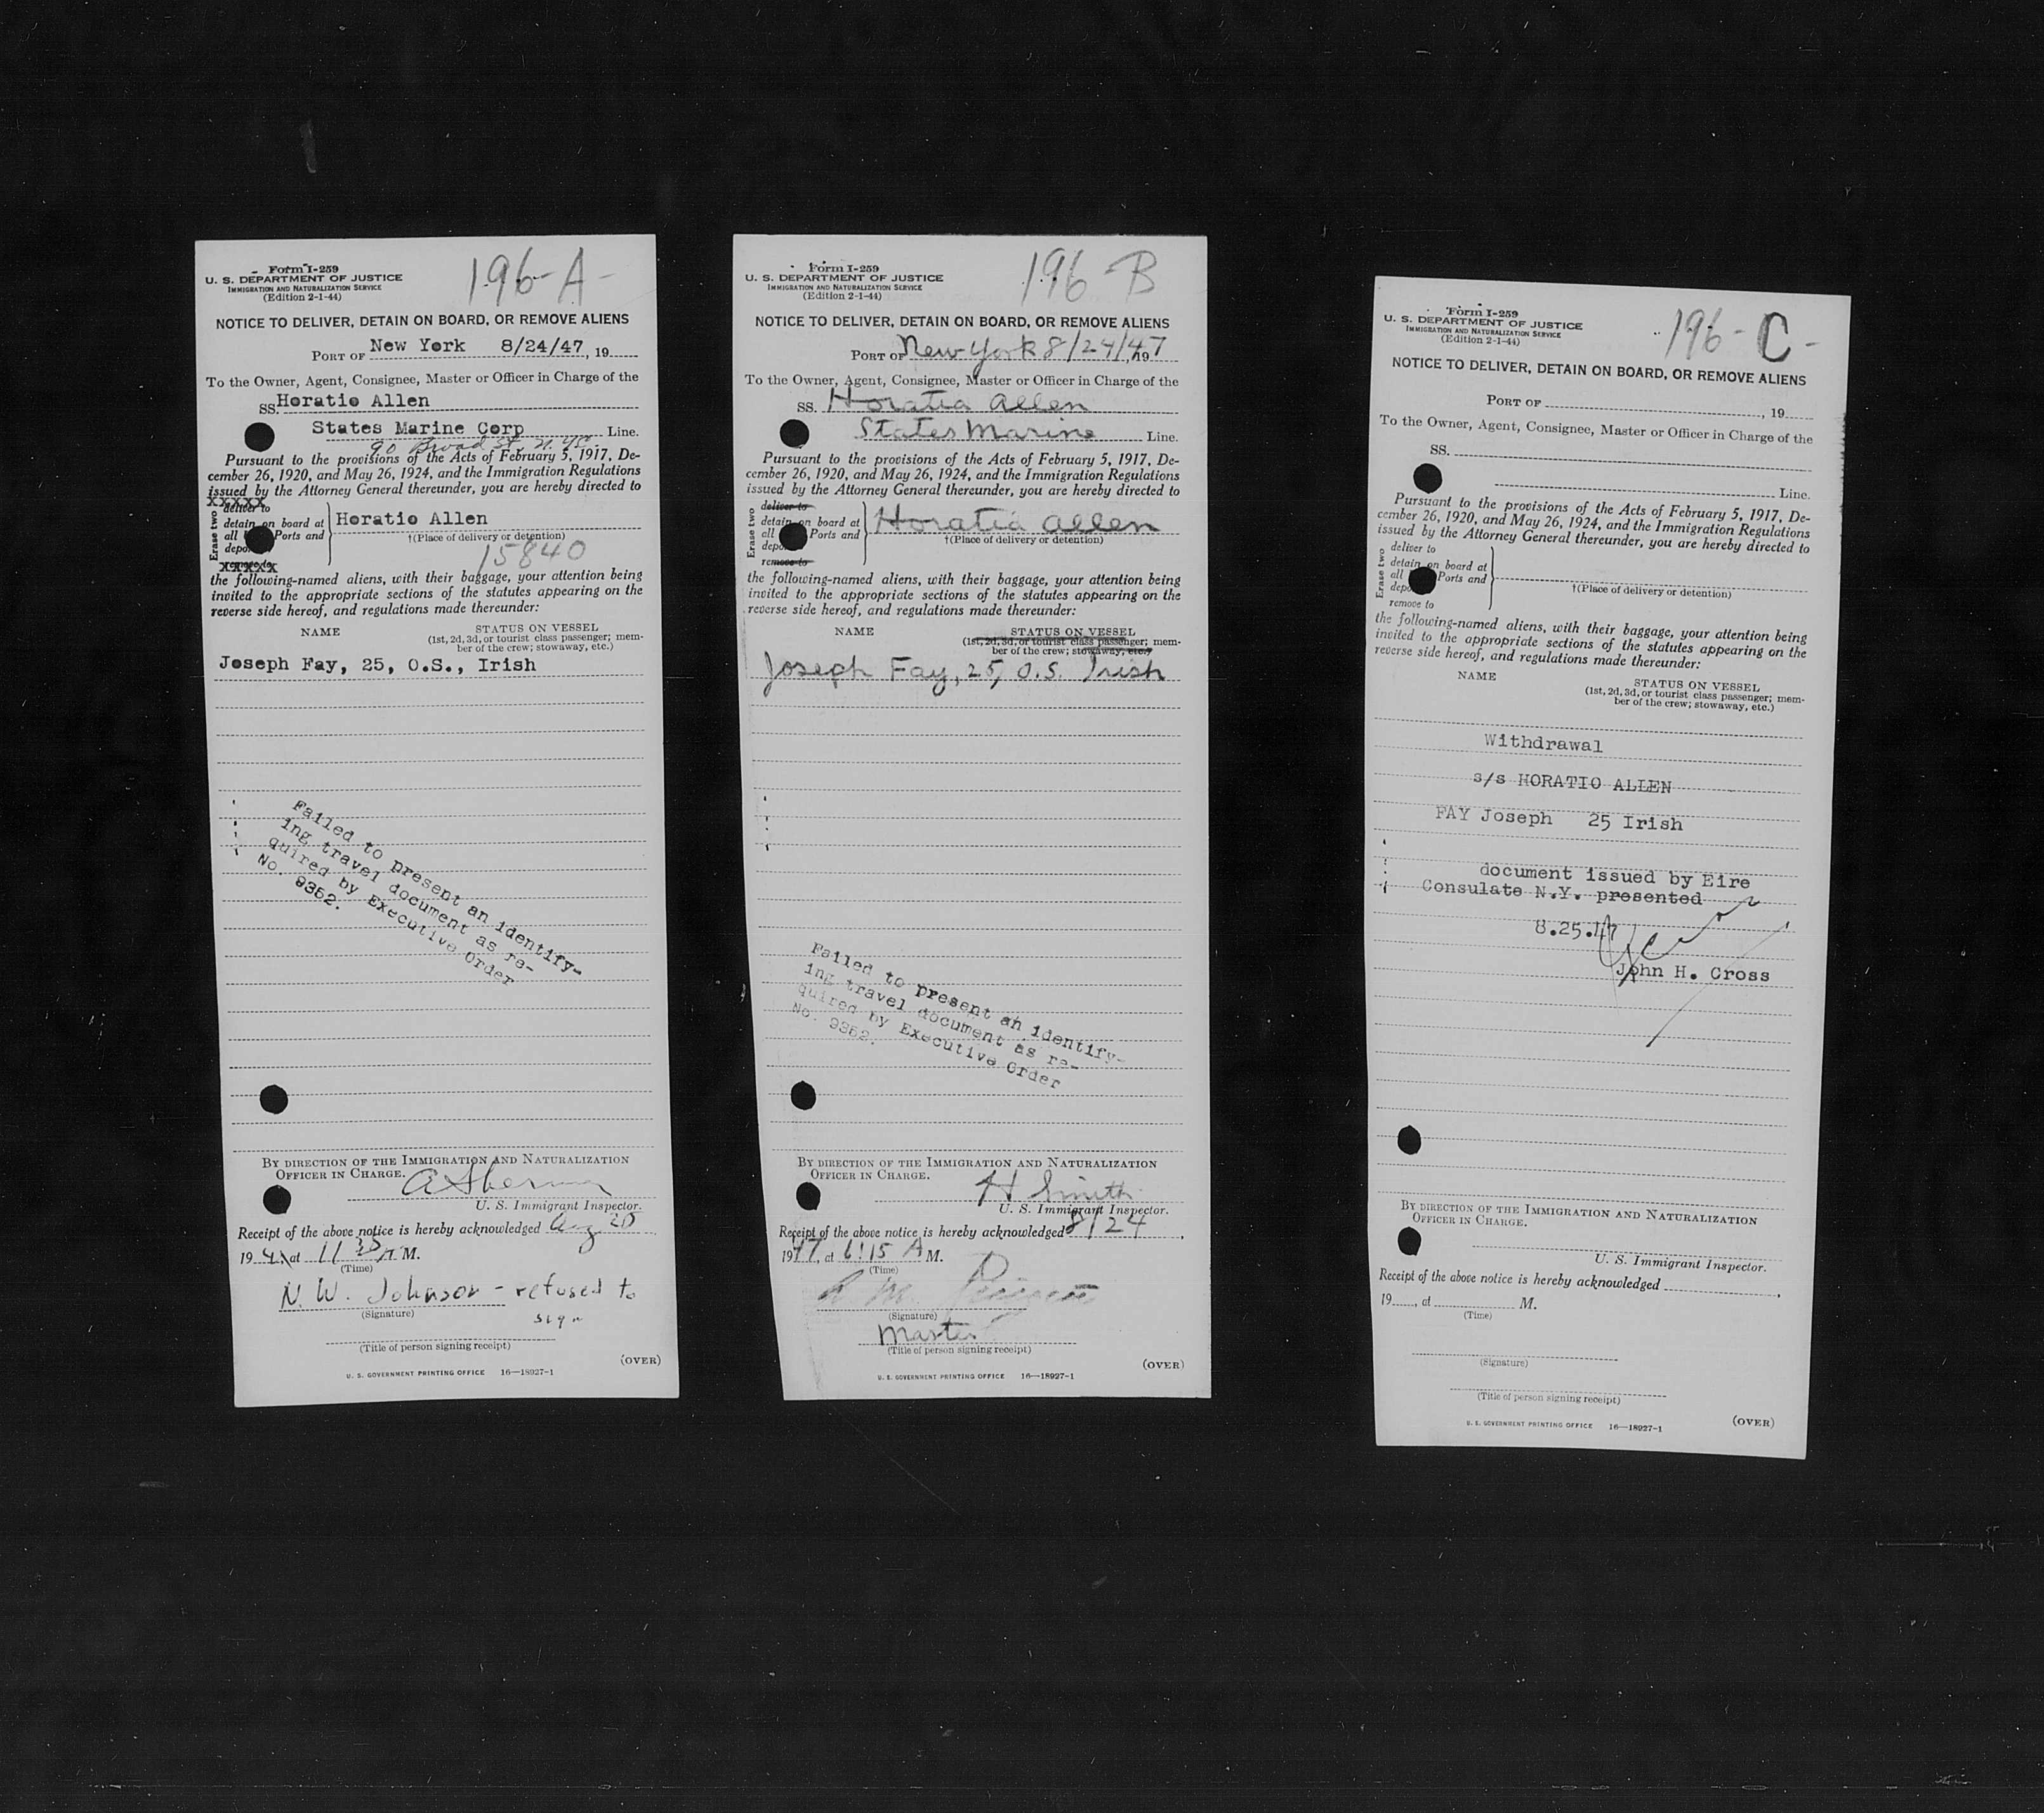 196-A-
Form I-259
U. S. DEPARTMENT OF JUSTICE
IMMIGRATION AND NATURALIZATION SERVICE
(Edition 2-1-44)
NOTICE TO DELIVER, DETAIN ON BOARD, OR REMOVE ALIENS
PORT OF New York 8/24/47, 19
To the Owner, Agent, Consignee, Master or Officer in Charge of the
SS. Horatio Allen
States Marine Corp Line.
90 Broad St. N.Y.C.
Pursuant to the provisions of the Acts of February 5, 1917, De-
cember 26, 1920, and May 26, 1924, and the Immigration Regulations
issued by the Attorney General thereunder, you are hereby directed to
XXXXX
Erase two
deliver to
detain on board at
all Ports and
remove to
XXXXX
Horatio Allen
†(Place of delivery or detention)
15840
the following-named aliens, with their baggage, your attention being
invited to the appropriate sections of the statutes appearing on the
reverse side hereof, and regulations made thereunder:
NAME STATUS ON VESSEL
(1st, 2d, 3d, or tourist class passenger; mem-
ber of the crew; stowaway, etc.)
Joseph Fay, 25, O.S., Irish
Failed to present an identify-
ing travel document as re-
quired by Executive Order
No. 9352.
BY DIRECTION OF THE IMMIGRATION AND NATURALIZATION
OFFICER IN CHARGE.
A Sherman
U. S. Immigrant Inspector.
Receipt of the above notice is hereby acknowledged Aug 25
19 at 11 35 A. M.
(Time)
N. W. Johnson - refused to
sign
(Signature)
(Title of person signing receipt)
(OVER)
U. S. GOVERNMENT PRINTING OFFICE 16—18927-1
196-B
Form I-259
U. S. DEPARTMENT OF JUSTICE
IMMIGRATION AND NATURALIZATION SERVICE
(Edition 2-1-44)
NOTICE TO DELIVER, DETAIN ON BOARD, OR REMOVE ALIENS
PORT OF New York 8/24/47, 19
To the Owner, Agent, Consignee, Master or Officer in Charge of the
SS. Horatia Allen
States Marine Line.
Pursuant to the provisions of the Acts of February 5, 1917, De-
cember 26, 1920, and May 26, 1924, and the Immigration Regulations
issued by the Attorney General thereunder, you are hereby directed to
Erase two
deliver to
detain on board at
all Ports and
remove to
Horatia Allen
†(Place of delivery or detention)
the following-named aliens, with their baggage, your attention being
invited to the appropriate sections of the statutes appearing on the
reverse side hereof, and regulations made thereunder:
NAME STATUS ON VESSEL
(1st, 2d, 3d, or tourist class passenger; mem-
ber of the crew; stowaway, etc.)
Joseph Fay, 25, O.S. Irish
Failed to present an identify-
ing travel document as re-
quired by Executive Order
No. 9352.
BY DIRECTION OF THE IMMIGRATION AND NATURALIZATION
OFFICER IN CHARGE.
H Smith
U. S. Immigrant Inspector.
Receipt of the above notice is hereby acknowledged 8/24,
1947, at 6:15 A M.
(Time)
(Signature)
Master
(Title of person signing receipt)
(OVER)
U. S. GOVERNMENT PRINTING OFFICE 16—18927-1
196-C-
Form I-259
U. S. DEPARTMENT OF JUSTICE
IMMIGRATION AND NATURALIZATION SERVICE
(Edition 2-1-44)
NOTICE TO DELIVER, DETAIN ON BOARD, OR REMOVE ALIENS
PORT OF , 19
To the Owner, Agent, Consignee, Master or Officer in Charge of the
SS.
Line.
Pursuant to the provisions of the Acts of February 5, 1917, De-
cember 26, 1920, and May 26, 1924, and the Immigration Regulations
issued by the Attorney General thereunder, you are hereby directed to
Erase two
deliver to
detain on board at
all Ports and
remove to
†(Place of delivery or detention)
the following-named aliens, with their baggage, your attention being
invited to the appropriate sections of the statutes appearing on the
reverse side hereof, and regulations made thereunder:
NAME STATUS ON VESSEL
(1st, 2d, 3d, or tourist class passenger; mem-
ber of the crew; stowaway, etc.)
Withdrawal
s/s HORATIO ALLEN
FAY Joseph 25 Irish
document issued by Eire
Consulate N.Y. presented
8.25.47
John H. Cross
BY DIRECTION OF THE IMMIGRATION AND NATURALIZATION
OFFICER IN CHARGE.
U. S. Immigrant Inspector.
Receipt of the above notice is hereby acknowledged ,
19 , at M.
(Time)
(Signature)
(Title of person signing receipt)
(OVER)
U. S. GOVERNMENT PRINTING OFFICE 16—18927-1